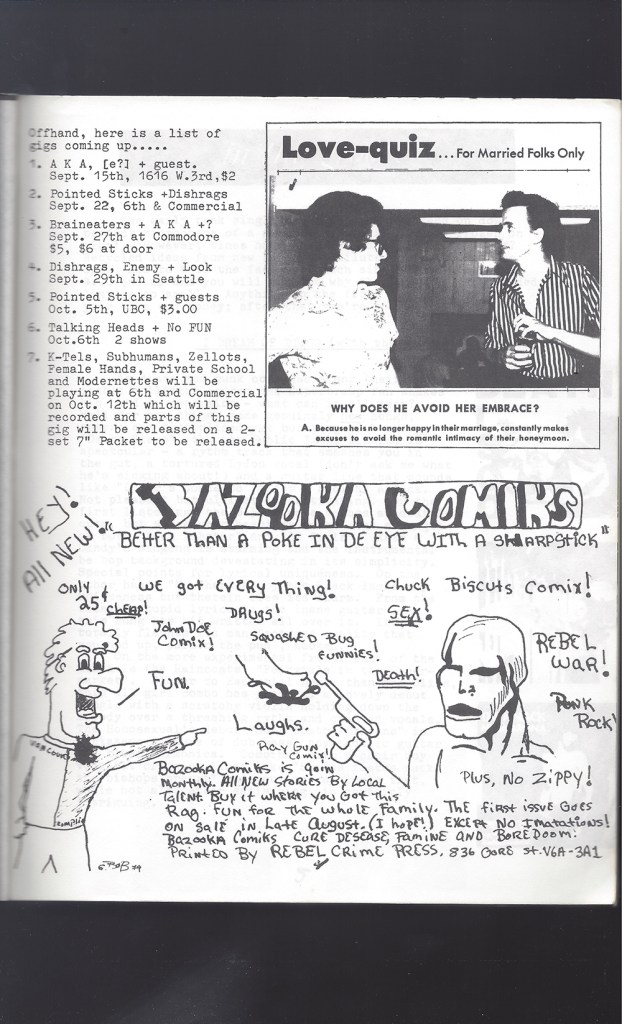 Offhand, here is a list of
gigs coming up.....
1. A K A, [e?] + guest.
Sept. 15th, 1616 W.3rd,$2
2. Pointed Sticks +Dishrags
Sept. 22, 6th & Commercial
3. Braineaters + A K A +?
Sept. 27th at Commodore
$5, $6 at door
4. Dishrags, Enemy + Look
Sept. 29th in Seattle
5. Pointed Sticks + guests
Oct. 5th, UBC, $3.00
6. Talking Heads + No FUN
Oct.6th 2 shows
7. K-Tels, Subhumans, Zellots,
Female Hands, Private School
and Modernettes will be
playing at 6th and Commercial
on Oct. 12th which will be
recorded and parts of this
gig will be released on a 2-
set 7" Packet to be released.
Love-quiz ... For Married Folks Only
WHY DOES HE AVOID HER EMBRACE?
A. Because he is no longer happy in their marriage, constantly makes
excuses to avoid the romantic intimacy of their honeymoon.
HEY!
All NEW!
BAZOOKA COMIKS
"BETTER THAN A POKE IN DE EYE WITH A SHARPSTICK"
ONLY 25¢
CHEAP!
WE got EVERYThing!
Chuck Biscuts Comix!
DRUgs!
SEX!
John Doe
Comix!
SQUASHED Bug
FUNNIES!
REBEL
WAR!
FUN.
Death!
PUNK
Rock!
Laughs.
RAY GUN
Comix!
Plus, NO ZIPPY!
BAZOOKA Comiks is goin
Monthly. All NEW Stories By Local
Talent. Buy it where you Got This
Rag. FUN FOR THE whole Family. The first issue Goes
ON Sale in Late August. (I hope!) EXCEPT NO Imatations!
BAZOOKA Comiks CURE DESEASE, FAMINE AND BOREDOOM.
PRINTED By REBEL CRIME PRESS. 836 GORE ST. V6A-3A1